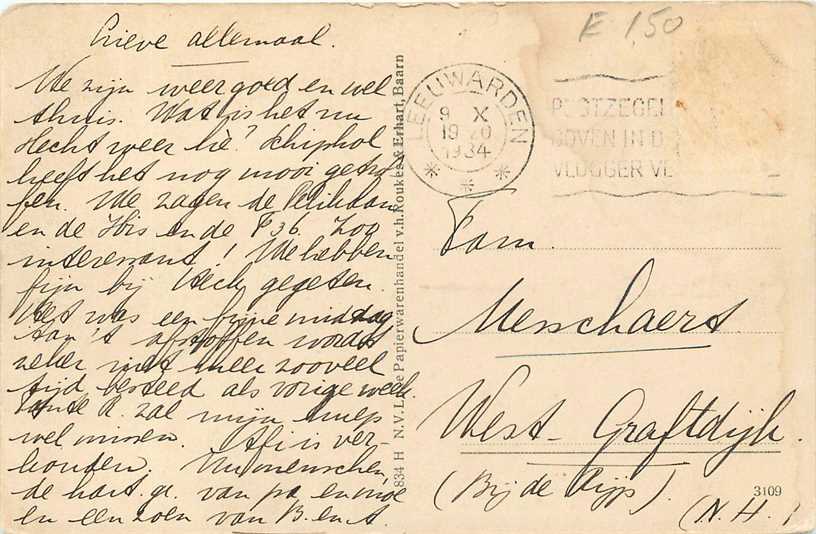 Lieve allemaal.
We zijn weer goed en wel
thuis. Wat is het nu
slecht weer hè? Schiphol
heeft het nog mooi getrof
fen. We zagen de Pelikaan
en de Ibis en de F 36. Zoo
interessant! We hebben
fijn bij Heck gegeten.
Het was een fijne middag
Aan 't afstoffen wordt
zeker niet meer zooveel
tijd besteed als vorige week.
Tante R. zal mijn hulp
wel missen. Afi is ver-
houden. Nu menschen
de hart. gr. van pa en moe
en een zoen van B. en A.
834 H N.V. Luxe Papierwarenhandel v.h. Roukes & Erhart, Baarn
E 1,50
LEEUWARDEN
9 X
19 20
1934
POSTZEGEL
BOVEN IN D
VLUGGER VE
Fam.
Messchaert
West-Graftdijk.
(Bij de Rijp).
3109
(N.H.)